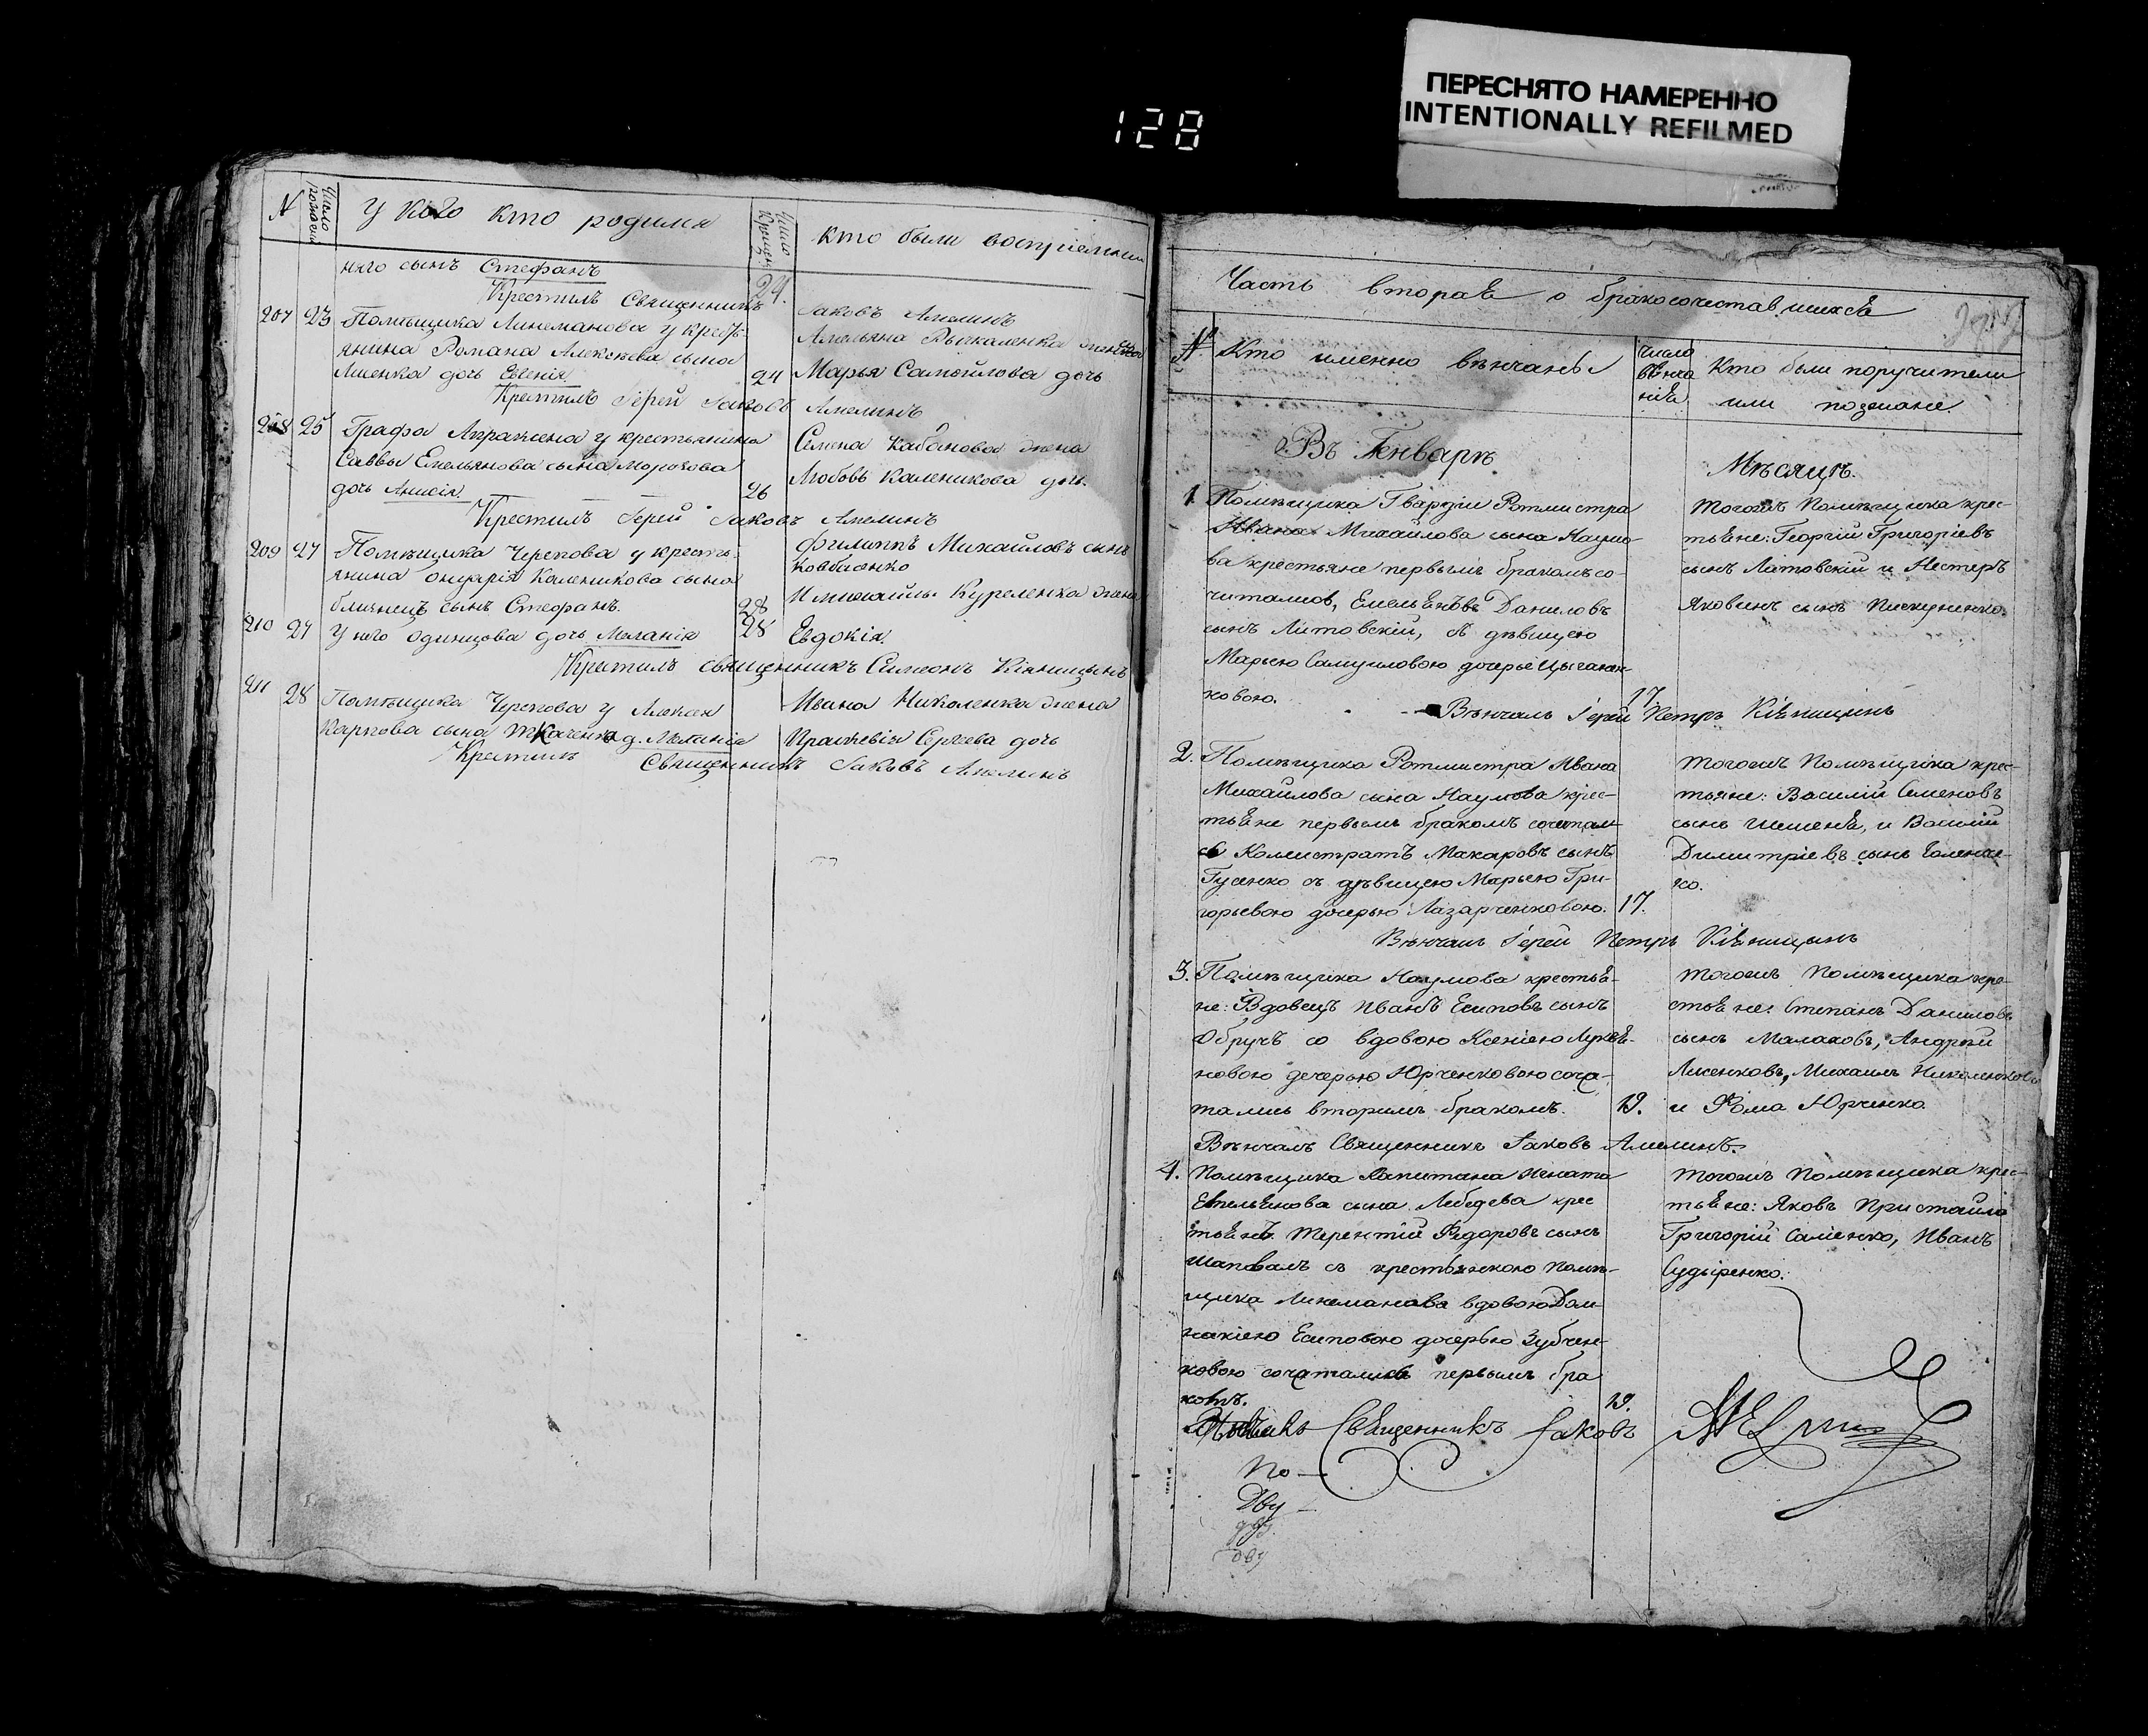 128
ПЕРЕСНЯТО НАМЕРЕННО
INTENTIONALLY REFILMED
N
Число рожден
У кого кто родился
Число Крещен
кто были восприемники
няго сынъ Стефанъ
29.
Крестилъ Священникъ Іаковъ Амелинъ
207 23 Помѣщика Линеманова у кресть-
янина Романа Алексѣева сына
Лисенка дочь Евгенія
24
Амельяна Рычкаленка жена
Марья Самойлова дочь
Крестилъ Іерей Іаковъ Амелинъ
208 25 Графа Апраксина у крестьянина
Саввы Емельянова сына Морозова
дочь Анисія.
26
Семена Кабанова жена
Любовь Каленикова дочь.
Крестилъ Іерей Іаковъ Амелинъ
209 27 Помѣщика Черепова у кресть-
янина Онуарія Каленикова сына
близнецъ сынъ Стефанъ.
28
Филиппъ Михайловъ сынъ
Ковбасенко
Куреленка жена
210 27 У него Одинцова дочь Меланія
28
Евдокія.
Крестилъ священникъ Симеонъ Кіяницынъ
211 28 Помѣщика Черепова у Алексея
Карпова сына Ткаченка д. Меланія
Ивана Николенка жена
Прасковія Сергѣева дочь
Крестилъ Священникъ Іаковъ Амелинъ
Часть вторая о бракосочетавшихся
№ Кто именно вѣнчаны
число вѣнча нія
Кто были поручители
или поезжане.
Въ Генварѣ
Мѣсяцѣ.
1 Помѣщика Гвардіи Ротмистра
Ивана Михайлова сына Наумо-
ва крестьяне первымъ бракомъ со-
читались, Емельянъ Даниловъ
сынъ Литовскій, съ дѣвицею
Марьею Самуиловою дочерью Цыганен-
ковою.
17.
Тогожъ Помѣщика крес-
тьяне: Георгій Григоріевъ
сынъ Литовскій и Нестеръ
Яковинъ сынъ Пискуненко.
Вѣнчалъ Іерей Петръ Кіяницынъ
2. Помѣщика Ротмистра Ивана
Михайлова сына Наумова крес-
тьяне первымъ бракомъ сочетали
сь Калистратъ Макаровъ сынъ
Гусенко съ дѣвицею Марьею Гри-
горьевою дочерью Лазарченковою.
17.
Тогожъ Помѣщика крес-
тьяне: Василій Семеновъ
сынъ Шешеня, и Василій
Димитріевъ сынъ Голенко-
Вѣнчалъ Іерей Петръ Кіяницынъ
3. Помѣщика Наумова крестья-
не: Вдовецъ Иванъ Есиповъ сынъ
Обручъ со вдовою Ксеніею Лукья-
новою дочерью Юрченковою соче-
тались вторымъ бракомъ.
19.
Тогожъ Помѣщика кре-
стьяне: Степанъ Даниловъ
сынъ Малаховъ, Андрей
Лисенковъ, Михаилъ Николенковъ
и Фома Юрченко.
Вѣнчалъ Священникъ Іаковъ Амелинъ.
4. Помѣщика Капитана Игната
Емельянова сына Лебедева крес
тьянъ Терентій Ѳедоровъ сынъ
Шаповалъ съ крестьянкою помѣ-
щика Линеманова вдовою Дом-
накіею Есиповою дочерью Зубчен-
ковою сочетались первымъ бра
комъ.
19.
Тогожъ Помѣщика крес-
тьяне: Яковъ Пристайло
Григорій Саліенко, Иванъ
Судыренко.
Священникъ Іаковъ
По
Дву